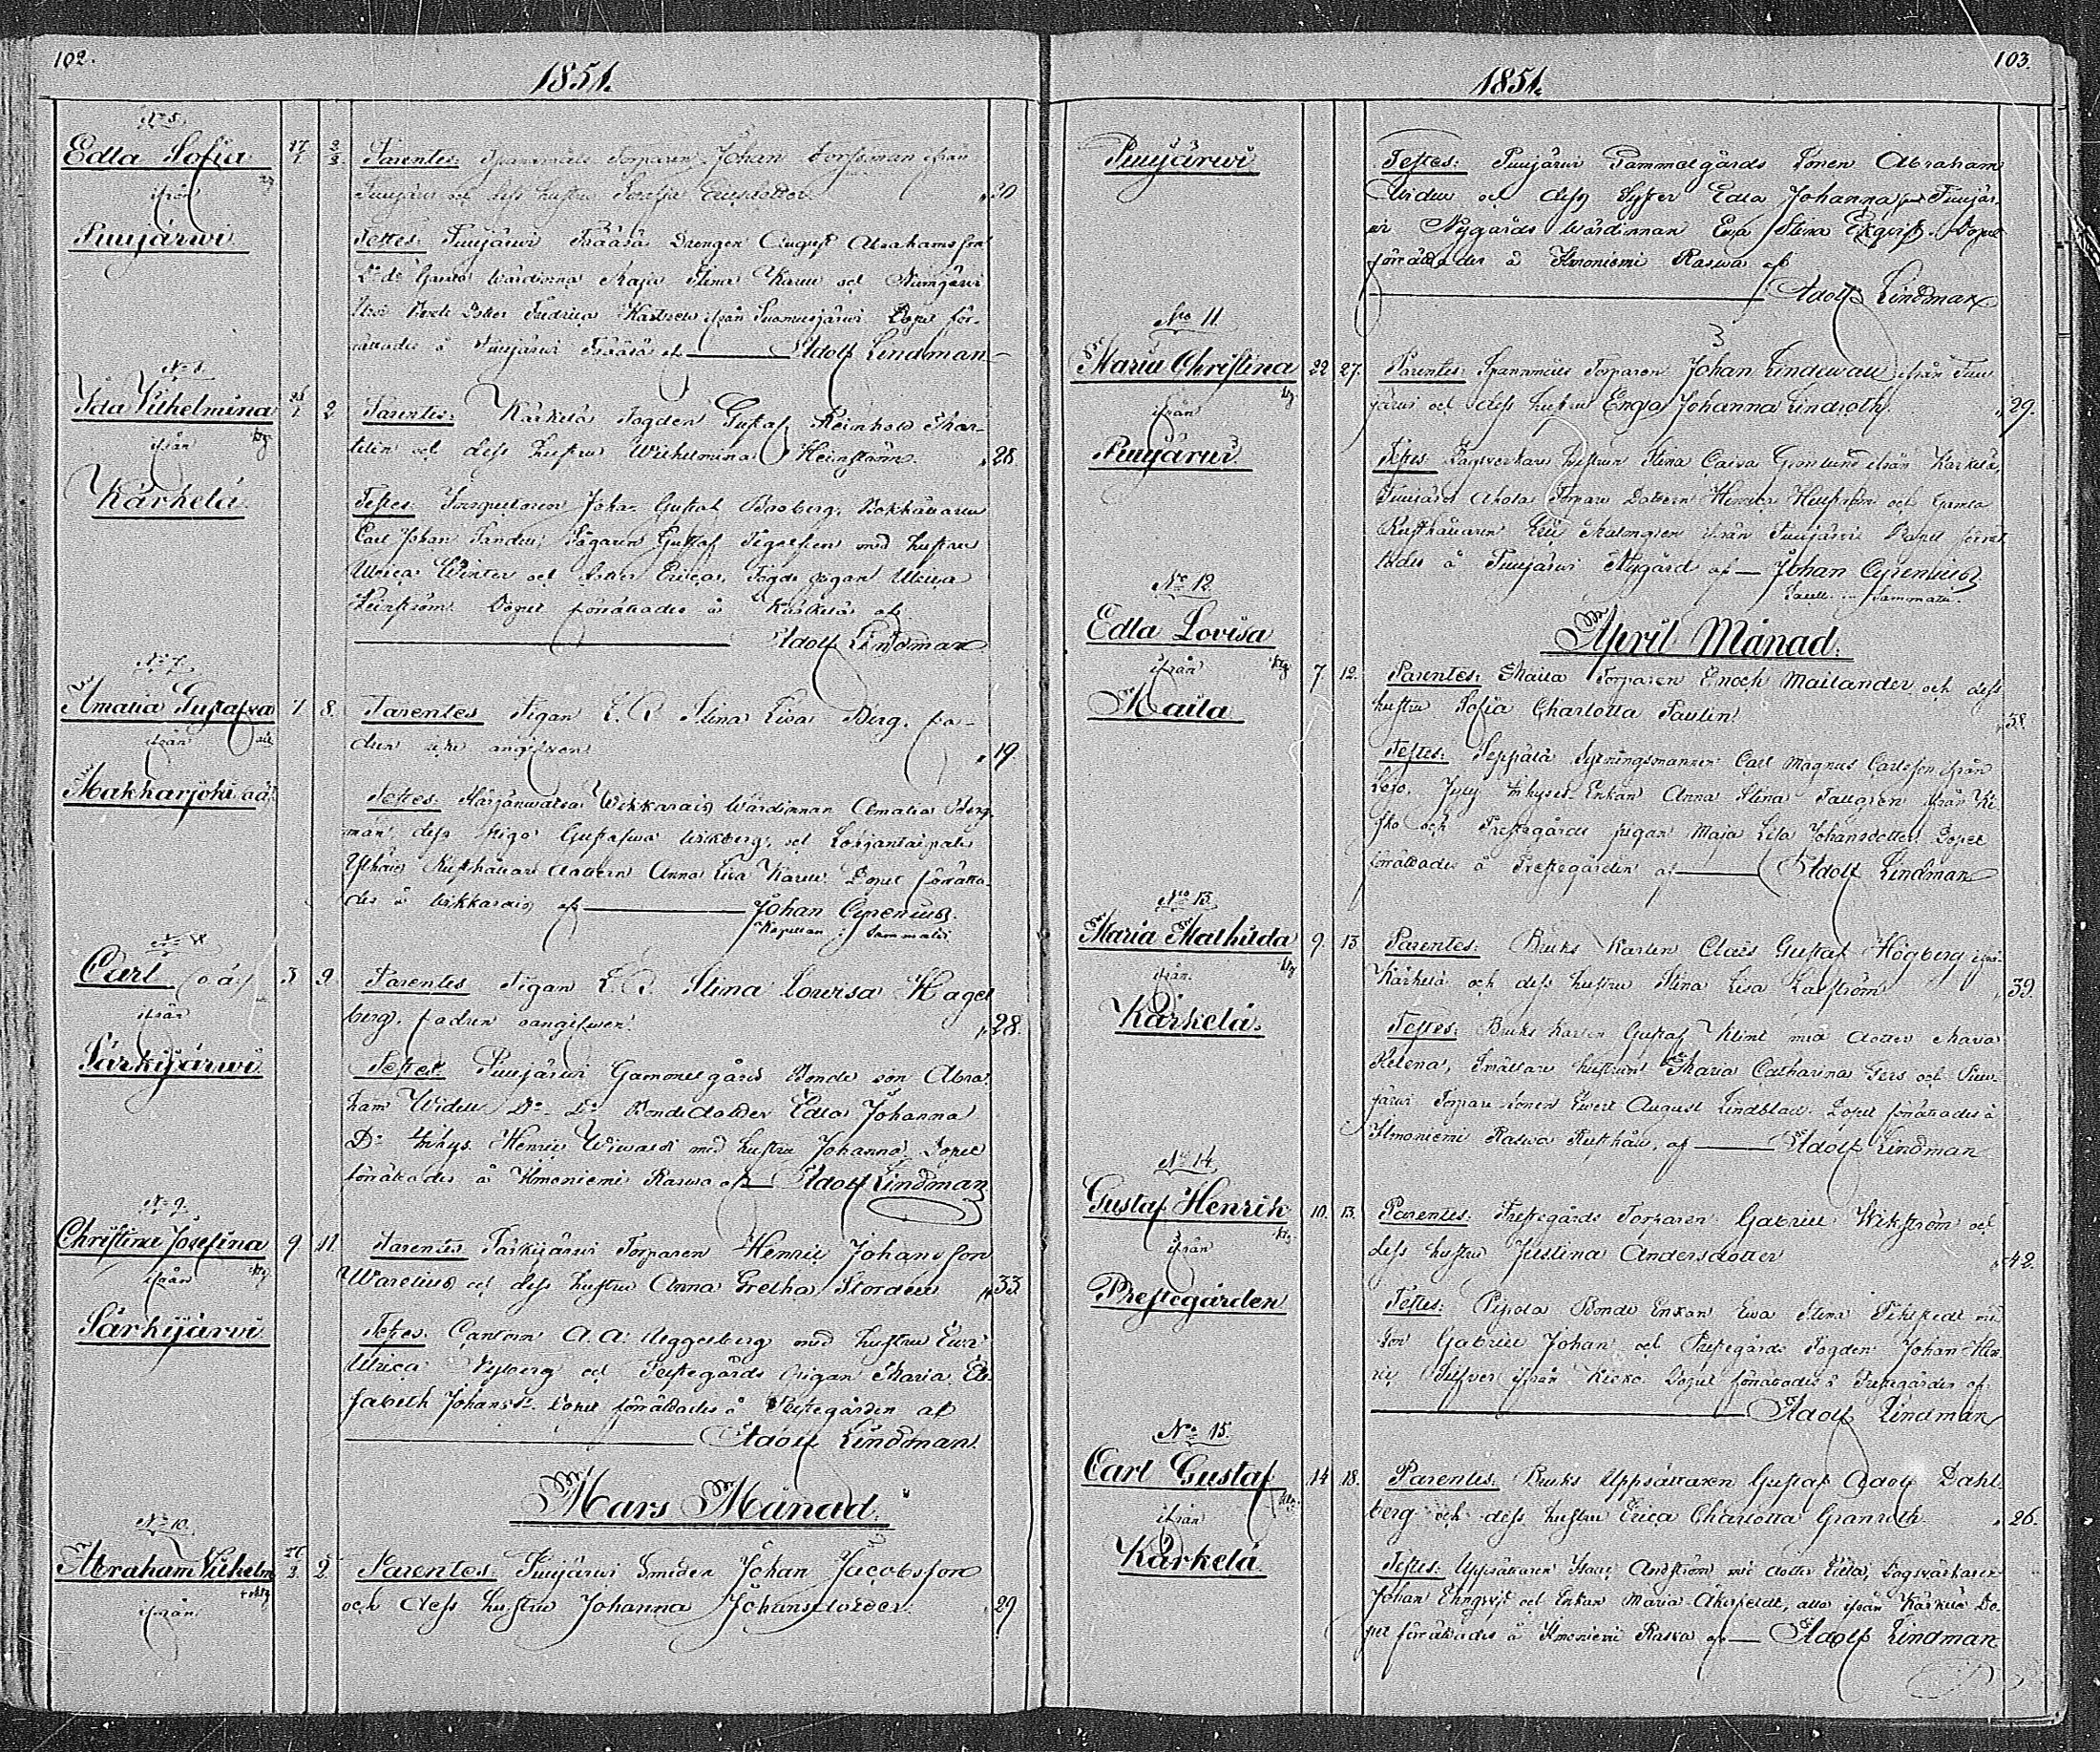 102.
1851.
No 5.
Edla Sofia 17/1 2/2
ifrån
Puujärwi
Parentes: Spannmåls Torparen Johan Forssman ifrån
Puujärwi och dess hustru 30
Testes: Puujärwi Drengen August Abrahamsson
wärdinna Maja Stina och
ifrån Suomusjärwi Dopet för-
rättades å Puujärwi af Adolf Lindman
Ida Vilhelmina 2
ifrån
Kärkelä
Parentes: Kärkelä Fogden Gustaf Reinhold Mar-
telin och dess hustru Wilhelmina Heinström. 28
Testes: Inspectoren Johan Gustaf Broberg, Bokhållaren
Carl Johan Sandell, Sågaren Gustaf med hustru
Ulrica Winter och Erica, Pigan Ulrica
Heinström. Dopet förrättades å Kärkelä af
Adolf Lindman
No 7.
Amalia Gustafva 7 8.
ifrån
Makkarjoki oä.
Parentes Pigan L. R. Stina Lisa Berg, fa-
dren icke angifven 19
Testes: Wikkarais Wärdinnan Amalia Berg-
man, dess Piga Gustafva Wikberg, och Lohjantaipale
Rusthållare dottern Anna Lisa Karell. Dopet förrätta-
des å Wikkarais af Johan Cyrenius.
Kapellan i Sammatti
No 8.
Carl (oä) 3 9
ifrån
Särkijärwi
Parentes Pigan L. R. Stina Lowisa Hagel
berg, fadren oangifven. 28.
Testes: Puujärwi Gammelgård Bonde son Abra-
ham Widell Do Do Bondedotter Edla Johanna
Do Inhys. Henric Wiwaldi med hustru Johanna Dopet
förrättades å Ilmoniemi Raswa af Adolf Lindman
No 9.
Christina Josefina 9 11
ifrån
Särkijärvi
Parentes Särkijärwi Torparen Henric Johansson
Warelius och dess hustru Anna Gretha Stordell 33
Testes: Cantorn A. A. Uggelberg med hustru Ewa
Ulrica Nyberg och Prestegårds Pigan Maria Eli-
sabeth Johansdr. Dopet förrättades å Prestegården af
Adolf Lindman
Mars Månad.
No 10.
Abraham Vilhelm 2
ifrån
Parentes: Puujärwi Smeden Johan Jacobsson
och dess hustru Johanna Johansdotter. 29
103.
1851.
Puujärwi
Testes: Puujärwi Gammelgårds Sonen Abraham
Widell och dess Syster Edla Johanna samt Puujär-
wi Nygårds Wärdinnan Ewa Stina Ekqvist. Dopet
förrättades å Ilmoniemi Raswa af
Adolf Lindman
No 11.
Maria Christina 22 27.
ifrån
Puujärwi
Parentes: Spannmåls Torparen Johan Lindewall ifrån Puu-
järwi och dess hustru Enga Johanna Lindroth. 29.
Testes: Dagsverkare hustrun Stina Caisa Grönlund ifrån Kärkelä,
Puujärwi Ahola Torpare Dottern Henrica och Gamla
Rusthållaren Malmgren ifrån Puujärwi. Dopet förrät-
tades å Puujärwi Nygård af Johan Cyrenius
Sammatti.
April Månad.
No 12.
Edla Lovisa 7 12.
ifrån
Maila
Parentes: Maila Torparen Enoch Mailander och dess
hustru Sofia Charlotta Paulin 38.
Testes: Seppälä Sytningsmannen Carl Magnus Carlsson ifrån
Lojo. Inhyses Enkan Anna Stina Tallgren ifrån Ki-
sko och Prestegårds pigan Maja Lisa Johansdotter. Dopet
förrättades å Prestegården af Adolf Lindman
No 13.
Maria Mathilda 9. 13
ifrån
Kärkelä.
Parentes: Bruks Karlen Claës Gustaf Högberg ifrån
Kärkelä och dess hustru Stina Lisa 39.
Testes: Bruks Karlen Gustaf Klint med dotter Maria
Helena, Smältare hustrun Maria Catharina Fers och Puu-
järwi Torpare sonen Ewert August Lindblad. Dopet förrättades å
Ilmoniemi Raswa Rusthåll, af Adolf Lindman
No 14.
Gustaf Henrik 10. 13.
ifrån
Prestegården
Parentes: Prestegårds Torparen Gabriel Wikström och
dess hustru Justina Andersdotter 42.
Testes: Pipola Bonde Enkan Ewa Stina med
son Gabriel Johan och Prestegårds Fogden Johan Hen-
ric Silfver ifrån Kisko. Dopet förrättades å Prestegården af
Adolf Lindman
No 15.
Carl Gustaf 14 18.
ifrån
Kärkelä
Parentes: Bruks Uppsättaren Gustaf Adolf Dahl-
berg och dess hustru Erica Charlotta Granroth. 26.
Testes: Uppsättaren Isaac Andström med dotter Edla, Dagsverkaren
Johan Ehnqvist och Enkan Maria Åkerfeldt, alla ifrån Kärkelä. Do-
pet förrättades å Ilmoniemi Raswa af Adolf Lindman